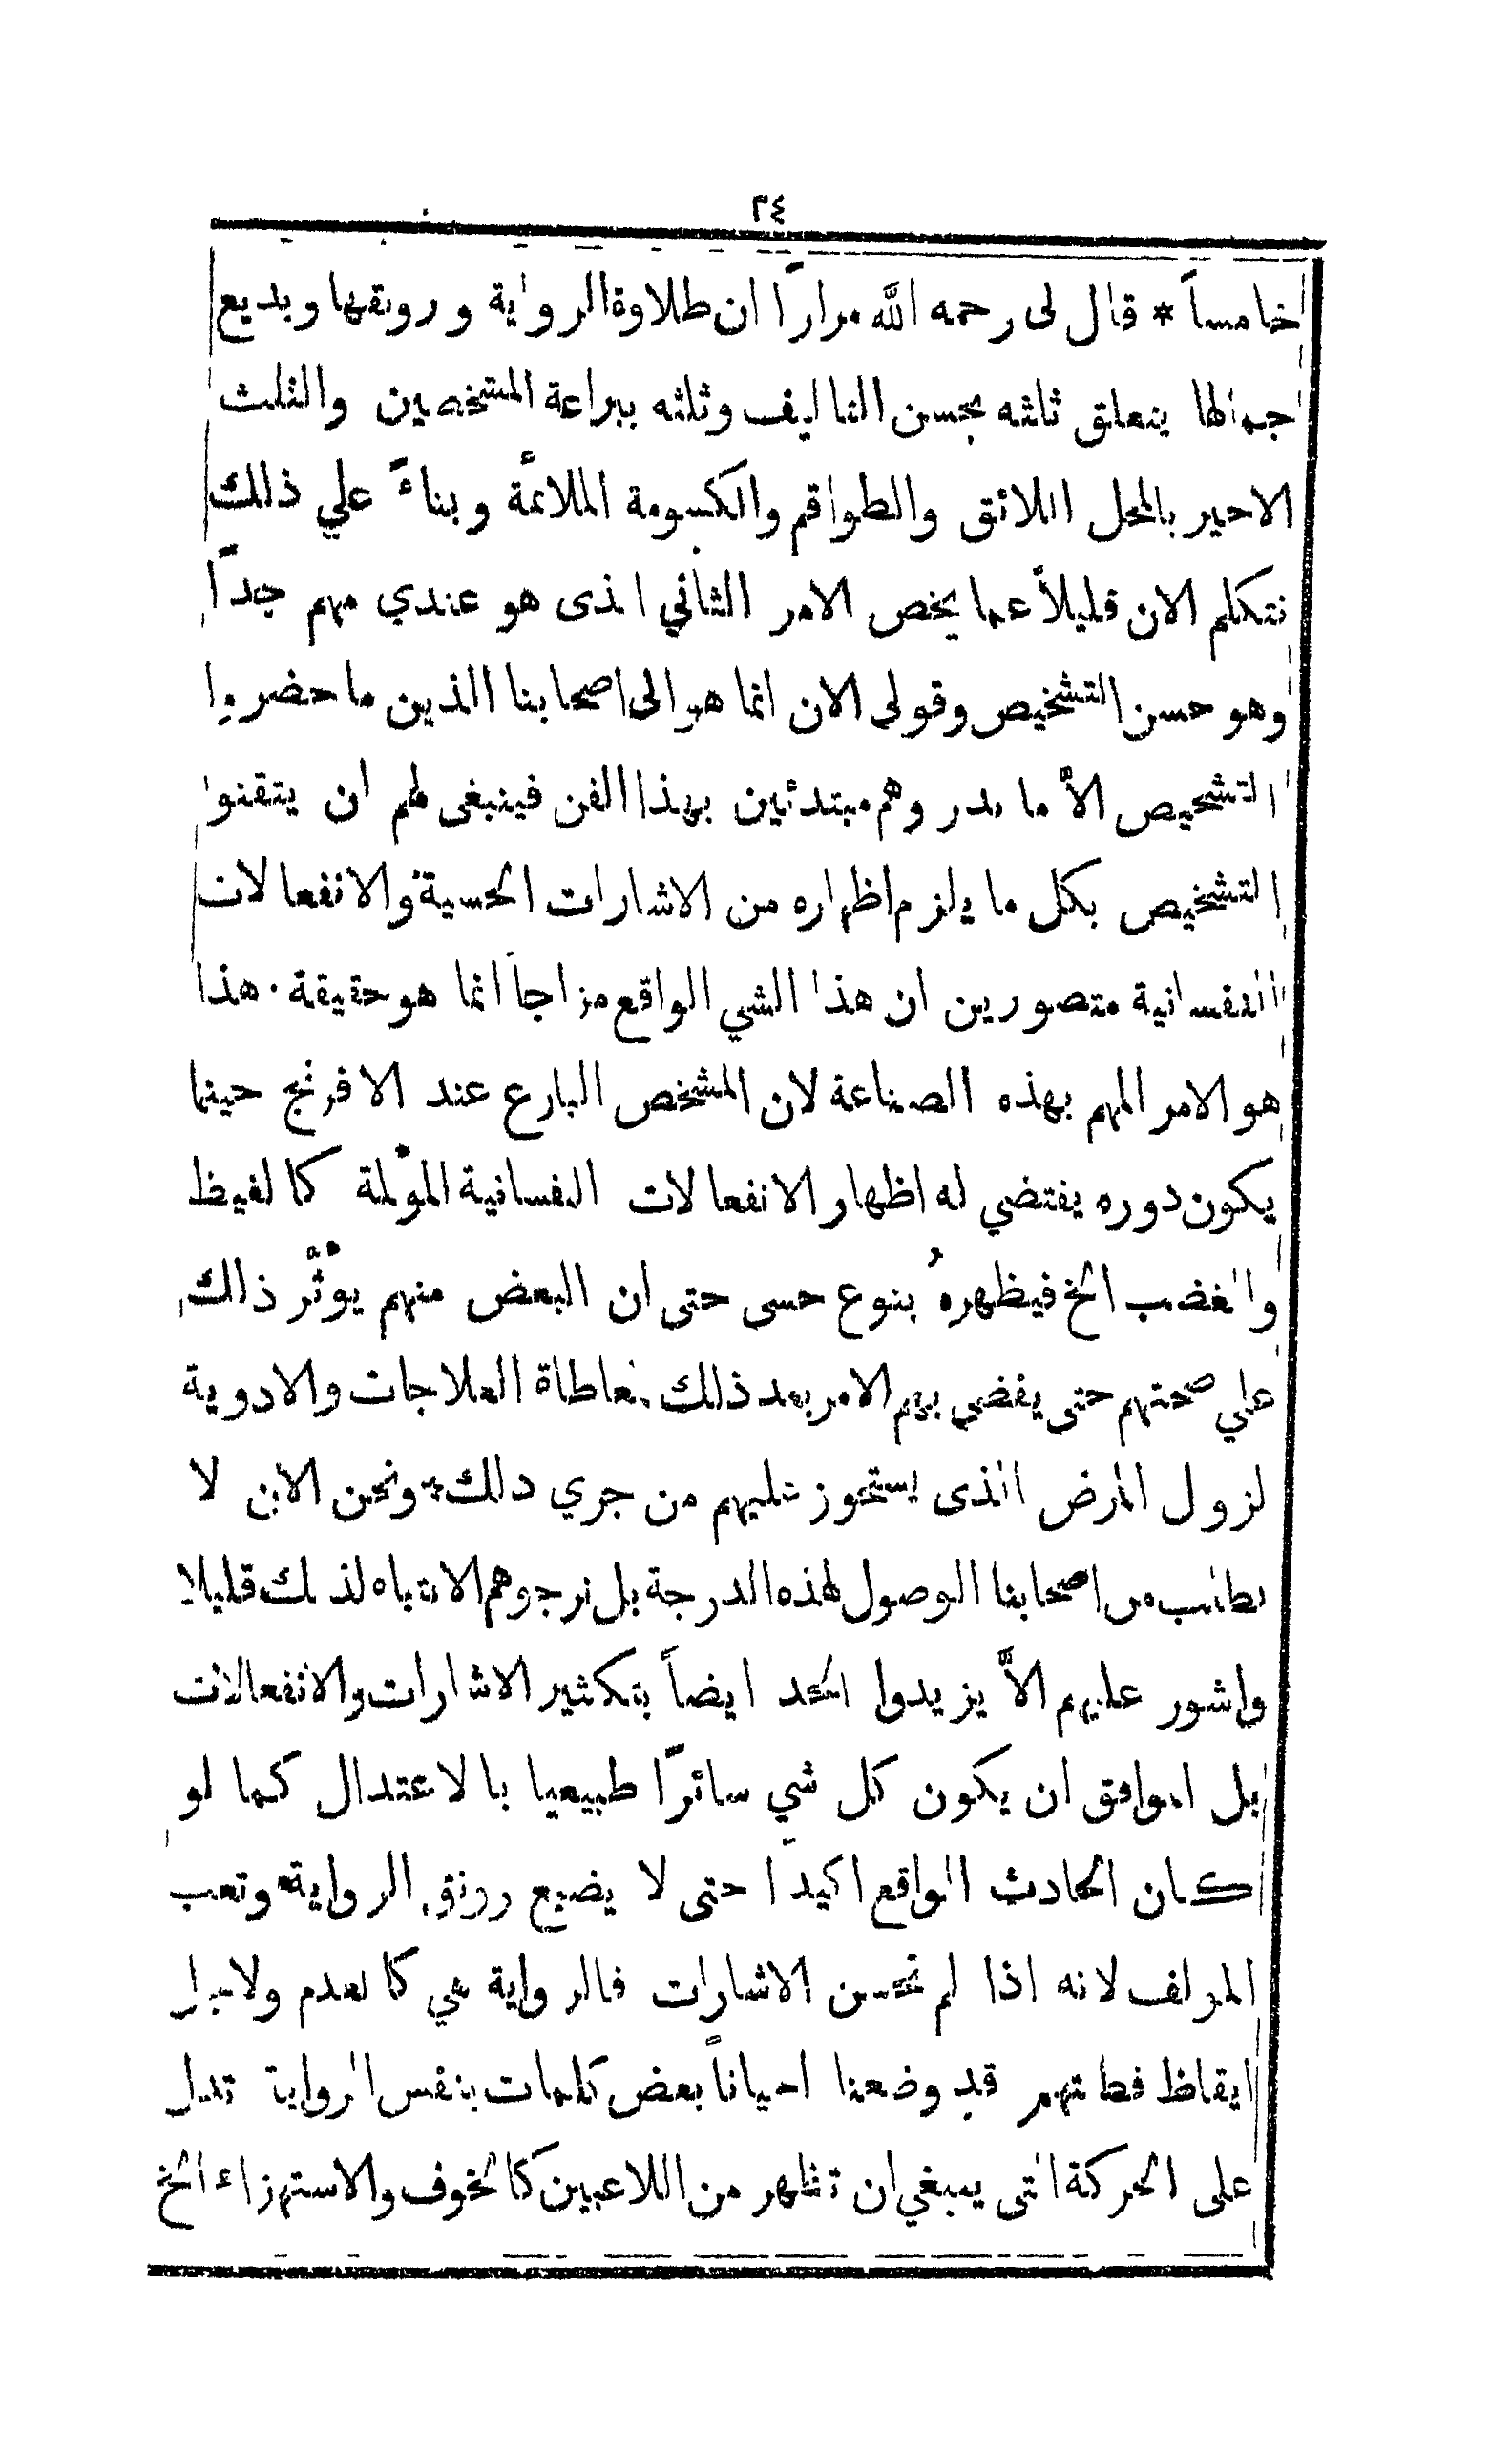 ٣٤
خامساً * قال لى رحمه الله مراراً ان طلاوة الرواية ورونقها وبديع
جمالها يتعلق ثلثه بحسن التاليف وثلثه ببراعة المشخصين والثلث
الاخير بالمحل اللائق والطواقم والكسومة الملائمة وبناءً علي ذلك
نتكلم الان قليلاً عما يخص الامر الثاني الذى هو عندي مهم جداً
وهو حسن التشخيص وقولى الان انما هو الى اصحابنا الذين ما حضروا
التشخيص الاَّ ما ندر وهم مبتدئين بهذا الفن فينبغى لهم ان يتقنوا
التشخيص بكل ما يلزم اظهاره من الاشارات الحسية والانفعالات
النفسانية متصورين ان هذا الشي الواقع مزاجاً انما هو حقيقة · هذا
هو الامر المهم بهذه الصناعة لان المشخص البارع عند الافرنج حينما
يكون دوره يقتضي له اظهار الانفعالات النفسانية المؤلمة كالغيظ
والغضب الخ فيظهرهُ بنوع حسى حتى ان البعض منهم يؤثّر ذلك
علي صحتهم حتى يفضي بهم الامر بعد ذلك لمعاطاة العلاجات والادوية
لزول المرض الذى يستحوز عليهم من جري ذلك * ونحن الان لا
نطلب من اصحابنا الوصول لهذه الدرجة بل نرجوهم الانتباه لذلك قليلا
واشور عليهم الاَّ يزيدوا الحد ايضاً بتكثير الاشارات والانفعالات
بل الموافق ان يكون كل شي سائراً طبيعيا بالاعتدال كما لو
كان الحادث الواقع اكيداً حتى لا يضيع رونق الرواية وتعب
المولف لانه اذا لم تحسن الاشارات فالرواية هي كالعدم ولاجل
ايقاظ فطانتهم قد وضعنا احياناً بعض كلمات بنفس الرواية تدل
على الحركة التى ينبغي ان تظهر من اللاعبين كالخوف والاستهزاء الخ